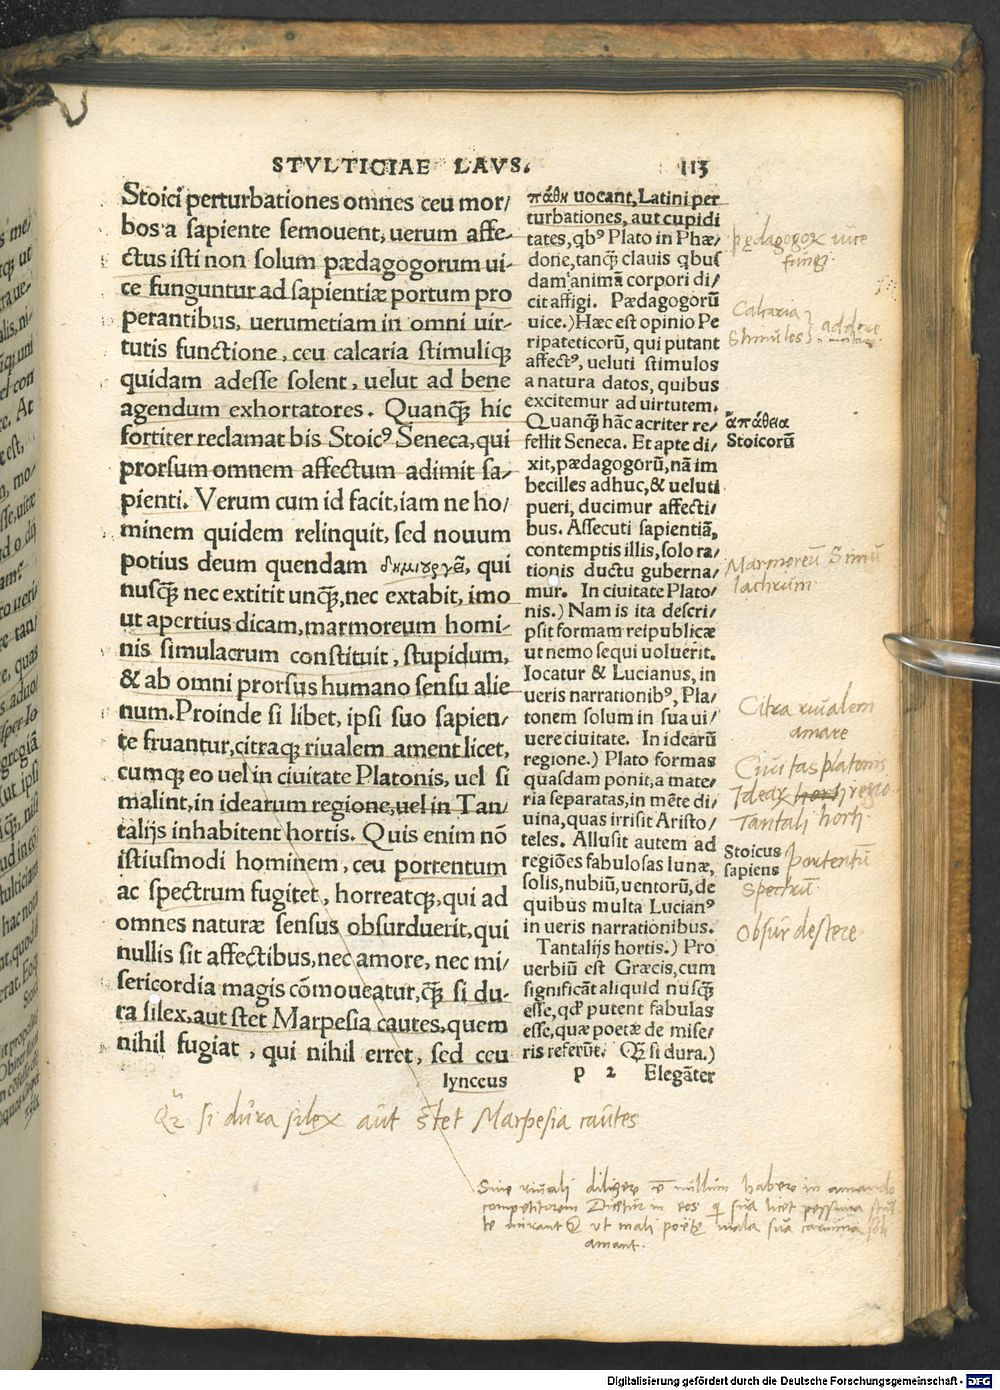 STVLTICIAE LAVS. 113
Stoici perturbationes omnes ceu mor/
bos a sapiente semouent, uerum affe-
ctus isti non solum pædagogorum ui-
ce funguntur ad sapientiæ portum pro
perantibus, uerumetiam in omni uir-
tutis functione, ceu calcaria stimuliqꝫ
quidam adesse solent, uelut ad bene
agendum exhortatores. Quanq̃ꝫ hic
fortiter reclamat bis Stoicꝰ Seneca, qui
prorsum omnem affectum adimit sa-
pienti. Verum cum id facit, iam ne ho/
minem quidem relinquit, sed nouum
potius deum quendam δημιουργὸν, qui
nusq̃ꝫ nec extitit unq̃ꝫ, nec extabit, imo
ut apertius dicam, marmoreum homi-
nis simulacrum constituit, stupidum,
& ab omni prorsus humano sensu alie
num. Proinde si libet, ipsi suo sapien/
te fruantur, citraqꝫ riualem ament licet,
cumqꝫ eo uel in ciuitate Platonis, uel si
malint, in idearum regione, uel in Tan/
talijs inhabitent hortis. Quis enim nō
istiusmodi hominem, ceu portentum
ac spectrum fugitet, horreatqꝫ, qui ad
omnes naturæ sensus obsurduerit, qui
nullis sit affectibus, nec amore, nec mi/
sericordia magis cōmoueatur, q̃ꝫ si du-
ra silex, aut stet Marpesia cautes, quem
nihil fugiat, qui nihil erret, sed ceu
lynceus
πάθη uocant, Latini per
turbationes, aut cupidi
tates, qbꝰ Plato in Phæ/
done, tanq̃ꝫ clauis qbus
dam animā corpori di/
cit affigi. Pædagogorū
uice.) Hæc est opinio Pe
ripateticorū, qui putant
affectꝰ, ueluti stimulos
a natura datos, quibus
excitemur ad uirtutem.
Quanq̃ꝫ hāc acriter re/
fellit Seneca. Et apte di/
xit, pædagogorū, nā im
becilles adhuc, & ueluti
pueri, ducimur affecti/
bus. Assecuti sapientiā,
contemptis illis, solo ra/
tionis ductu guberna/
mur. In ciuitate Plato/
nis.) Nam is ita descri/
psit formam reipublicæ
ut nemo sequi uoluerit.
Iocatur & Lucianus, in
ueris narrationibꝰ, Pla/
tonem solum in sua ui/
uere ciuitate. In idearū
regione.) Plato formas
quasdam ponit, a mate/
ria separatas, in mēte di/
uina, quas irrisit Aristo/
teles. Allusit autem ad
regiōes fabulosas lunæ,
solis, nubiū, uentorū, de
quibus multa Lucianꝰ
in ueris narrationibus.
Tantalijs hortis.) Pro
uerbiū est Græcis, cum
significāt aliquid nusq̃ꝫ
esse, qd̓ putent fabulas
esse, quæ poetæ de mise/
ris referūt. Q̃ꝫ si dura.)
p 2 Elegāter
pędagogoꝝ uice
fungi
Calcaria
Stimulos addere
ἀπάθεια
Stoicorū
Marmoreū Simu
lachrum
Citra riualem
amare
Ciuitas platonis
Ideaꝝ regio
Tantali horti
Stoicus
sapiens
portentū
Spectrū
Obsurdescere
Qᷓ si dura silex aut stet Marpesia cautes
Sine riuali diligere ē nullum habere in amando
competitorem Dicitur in eos qui sua licet pessima stul
te mirantur ut mali poëtę mala sua carmina soli
amant.
Digitalisierung gefördert durch die Deutsche Forschungsgemeinschaft - DFG